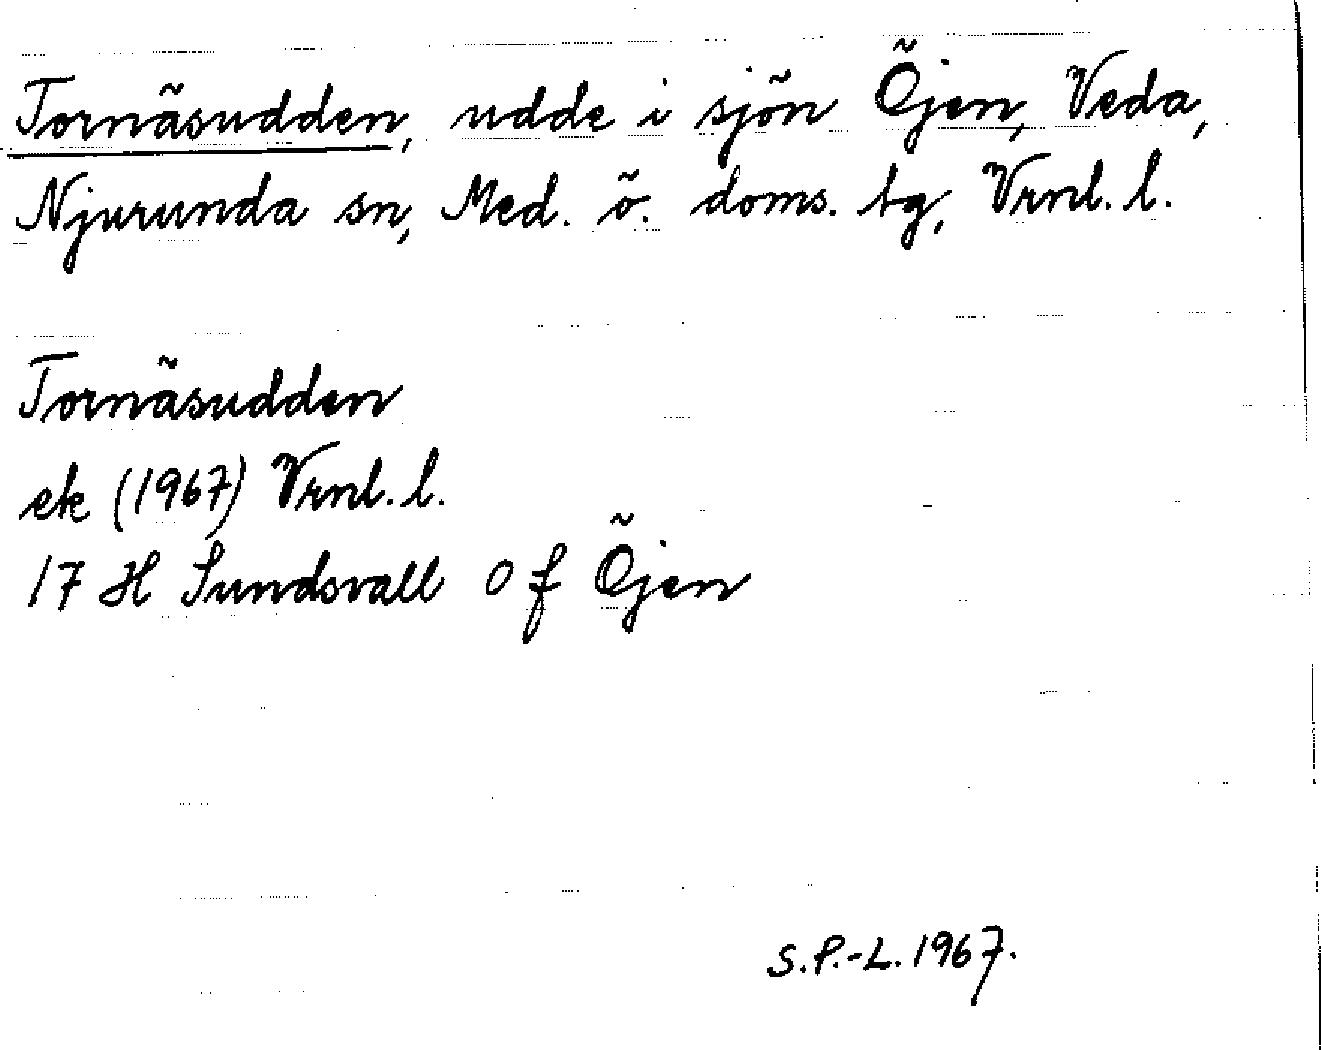 Tornäsudden, udde i sjön Öjen, Veda,
Njurunda sn, Med. ö. doms. tg, Vrnl. l.
Tornäsudden
ek (1967) Vrnl. l.
17 H Sundsvall 0 f Öjen
S.P.-L. 1967.